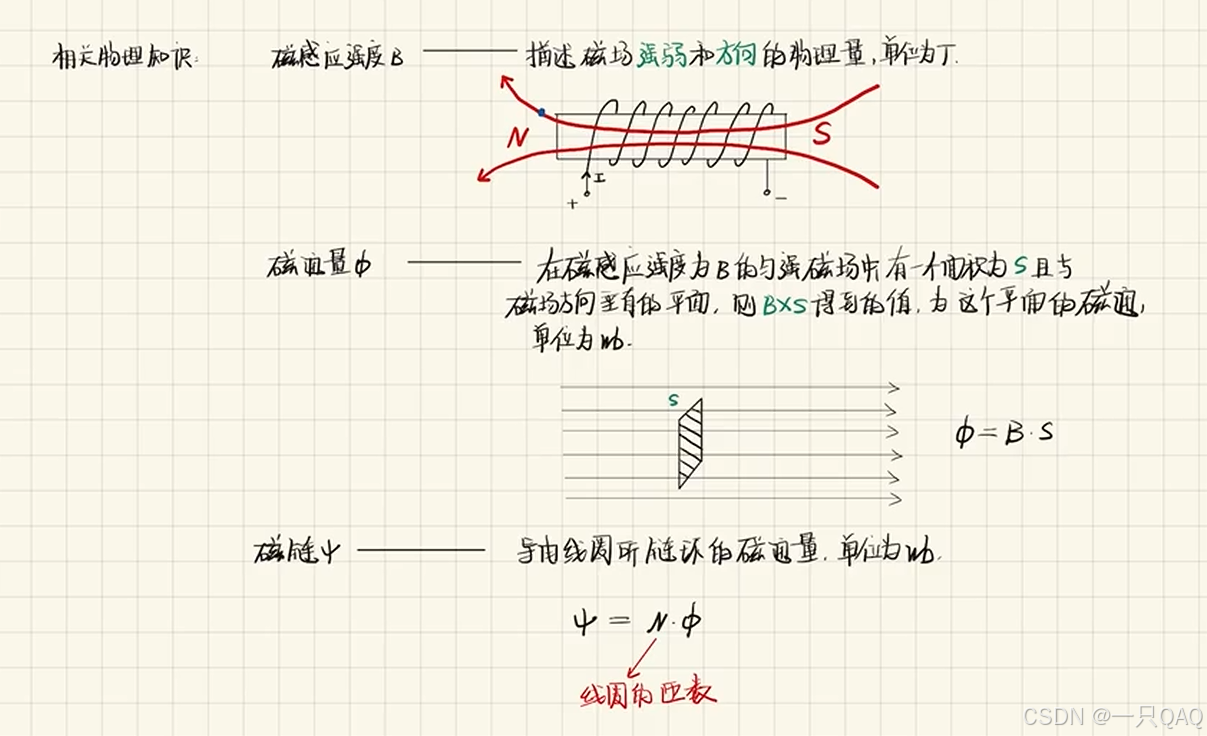 相关物理知识: 磁感应强度B —— 描述磁场强弱和方向的物理量,单位为T.
N S
I
+ −
磁通量ϕ —— 在磁感应强度为B的匀强磁场中有一个面积为S且与
磁场方向垂直的平面,则B×S得到的值,为这个平面的磁通,
单位为wb.
S
ϕ=B·S
磁链ψ —— 导电线圈所链环的磁通量,单位为wb.
ψ = N·ϕ
线圈的匝数
CSDN @一只QAQ